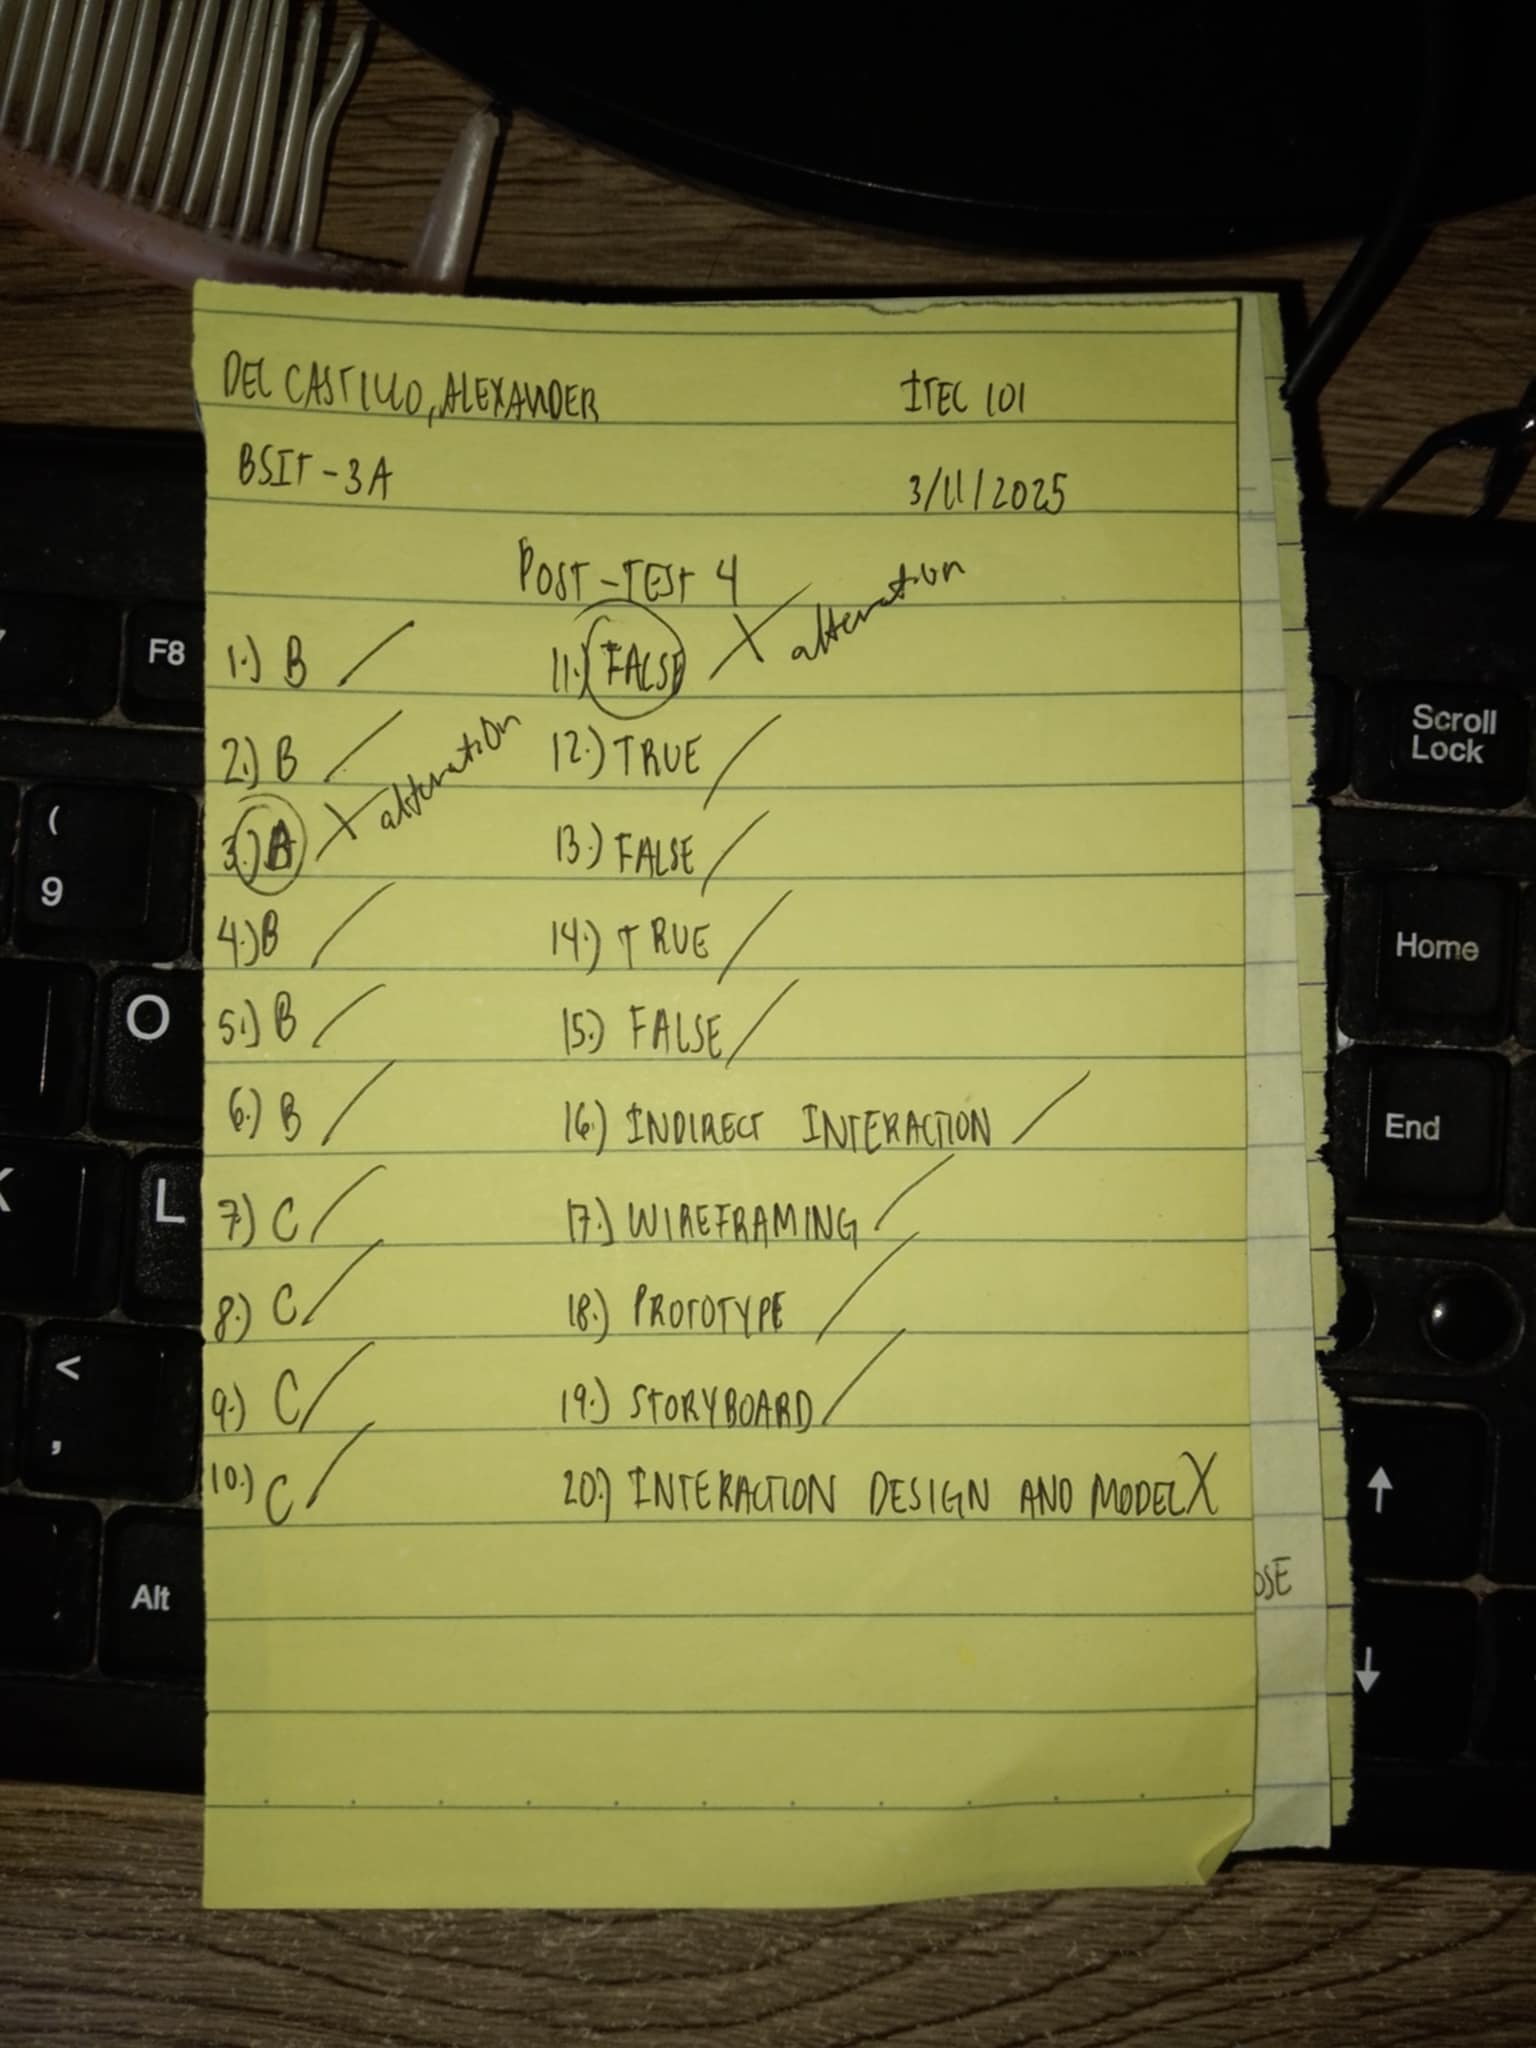 DEL CASTILLO, ALEXANDER
ITEC 101
BSIT - 3A
3/11/2025
POST-TEST 4
1.) B
2.) B
3.) alteration
4.) B
5.) B
6.) B
7.) C
8.) C
9.) C
10.) C
11.) FALSE X alteration
12.) TRUE
13.) FALSE
14.) TRUE
15.) FALSE
16.) INDIRECT INTERACTION
17.) WIREFRAMING
18.) PROTOTYPE
19.) STORYBOARD
20.) INTERACTION DESIGN AND MODEL X
OSE
F8
(
9
O
L
<
,
Alt
Scroll
Lock
Home
End
↑
↓